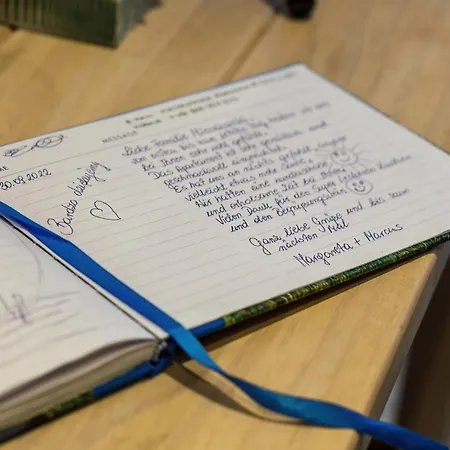 MESSAGE
30.09.2022
Bardzo dziękujemy
Liebe Familie
von ersten bis zum haben wir uns
bei Ihnen sehr wohl gefühlt.
Das Apartment ist sehr gemütlich und
geschmackvoll eingerichtet.
Es hat uns an nichts gefehlt, super
vielleicht etwas mehr Sonne.
Wir hatten eine wunderschöne
und erholsame Zeit bei Ihnen.
Vielen Dank für den super leckeren Kuchen
und den Begrüßungssekt.
Ganz liebe Grüße und bis zum
nächsten Mal
Margareta + Marcus